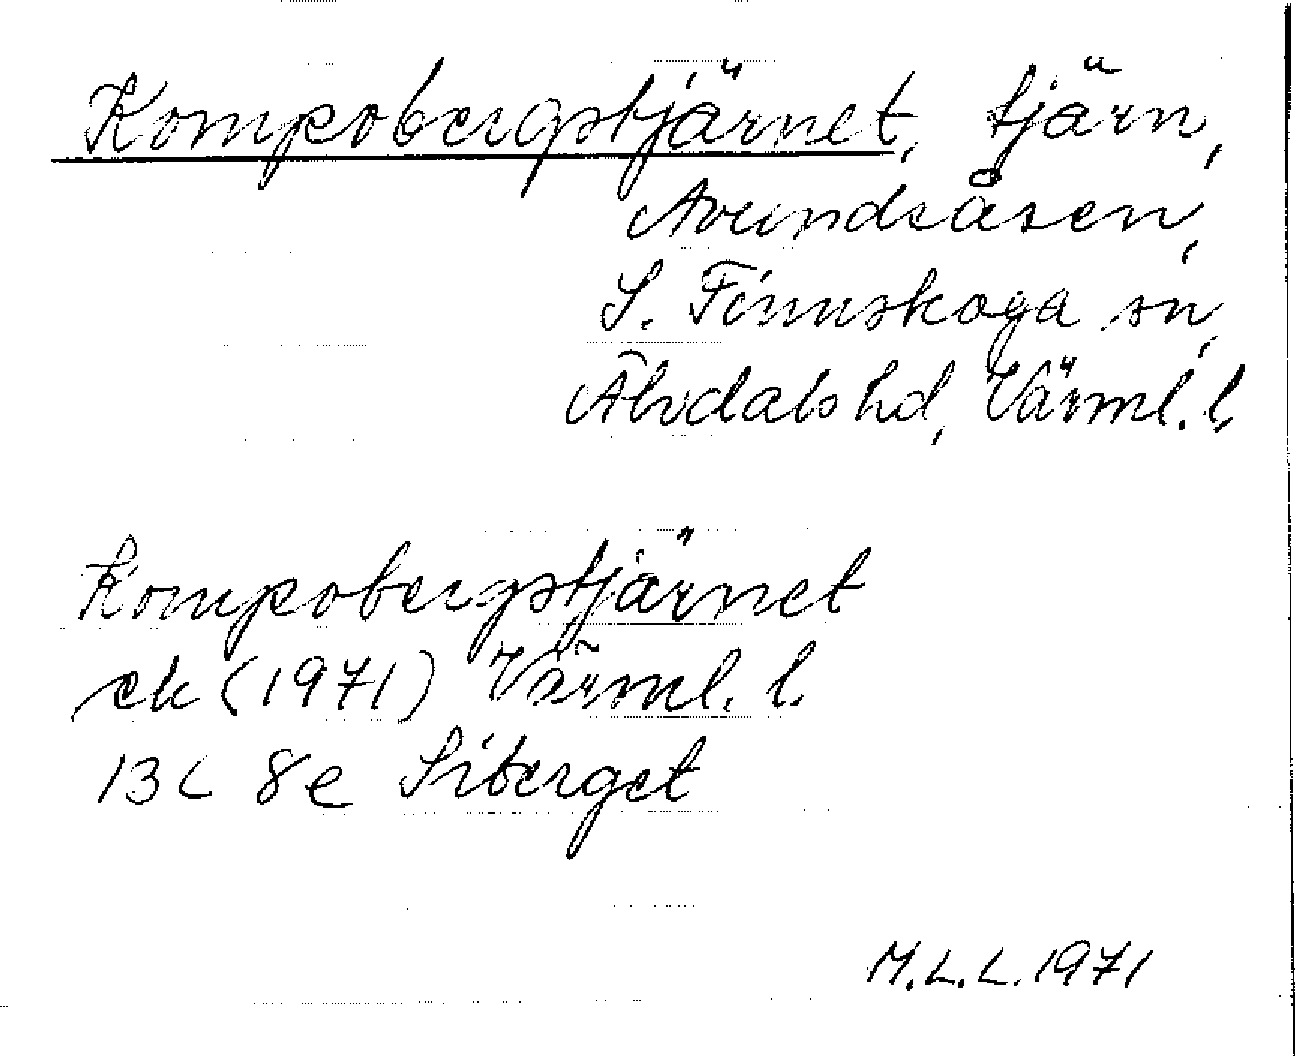 Kompobergstjärnet, tjärn,
Avundsåsen,
S. Finnskoga sn,
Älvdals hd, Värml. l.
Kompobergstjärnet
ek (1971) Värml. l.
13C 8e Siberget
M.L.L. 1971